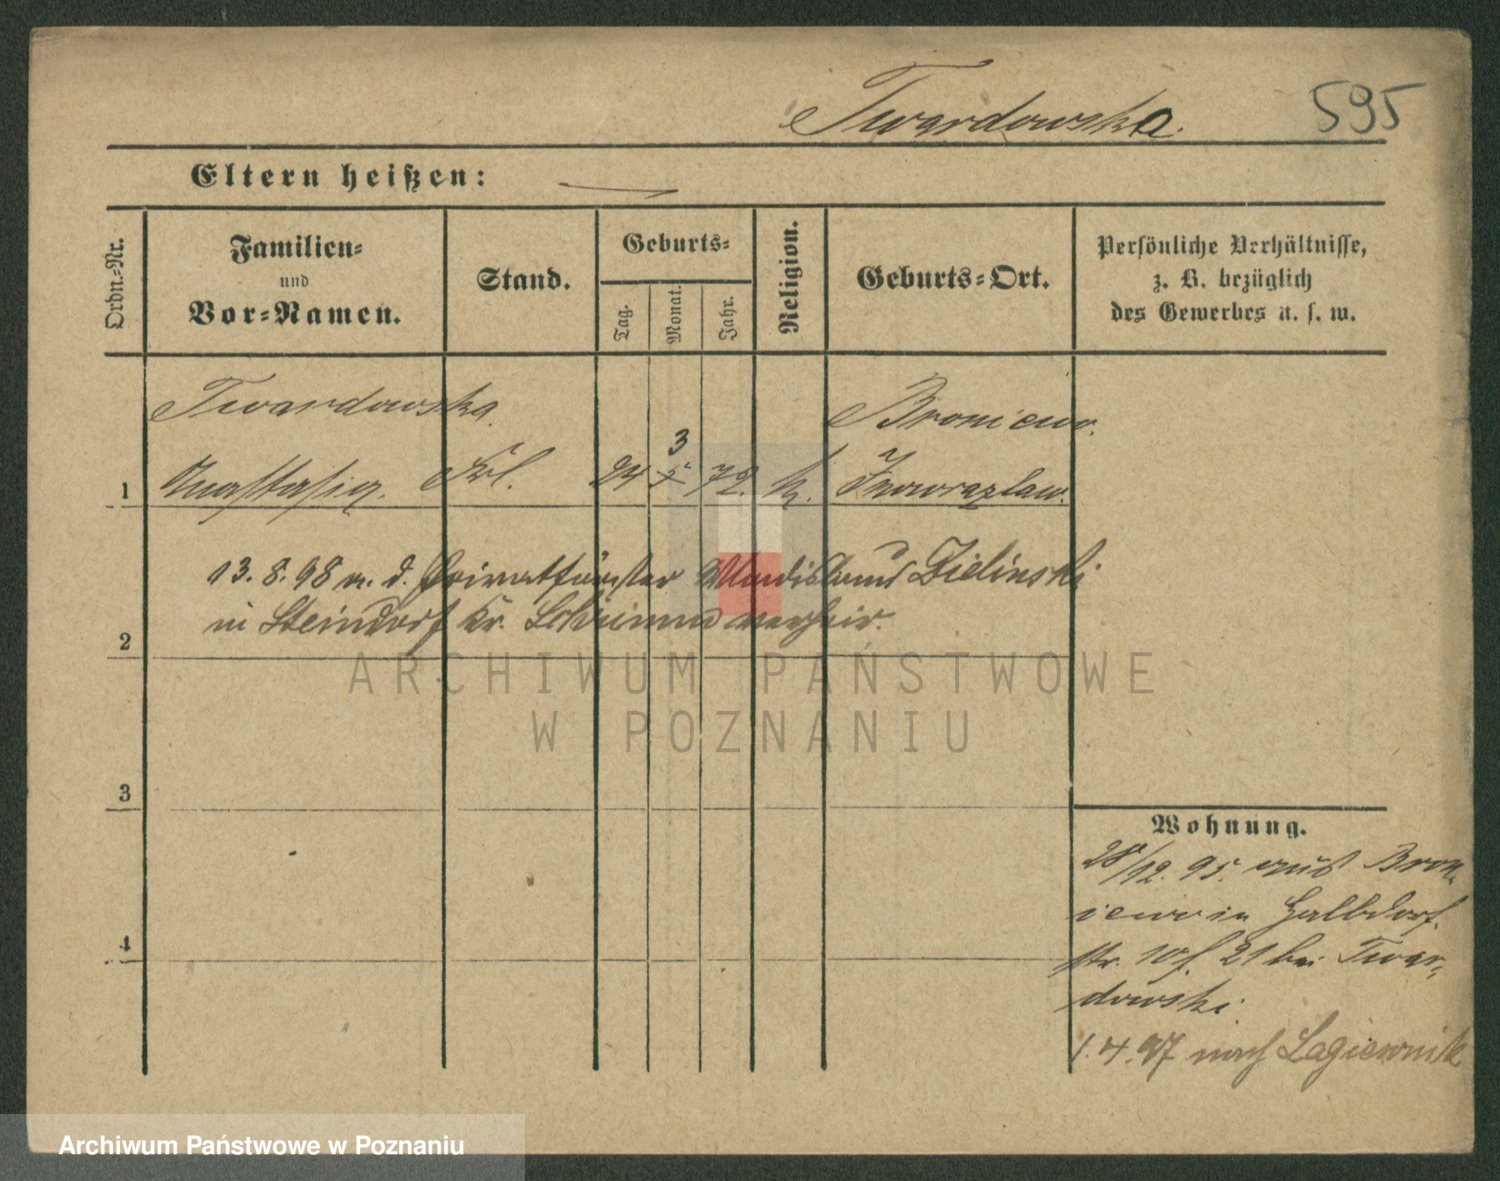 Twardowska.
595
Eltern heißen:
Ordn.-Nr.
Familien-
und
Vor-Namen.
Stand.
Geburts-
Tag.
Monat.
Jahr.
Religion.
Geburts-Ort.
Persönliche Verhältnisse,
z. B. bezüglich
des Gewerbes u. s. w.
Twardowska Broniewo.
3
1 Anastasia. Frl. 24 72. k. Inowrazlaw.
13. 8. 98 m. d. Privatförster Wladislaus Zielinski
2 in Steindorf Kr. Schrimm verheir.
ARCHIWUM PAŃSTWOWE
W POZNANIU
3
4
Wohnung.
28/12. 95. aus Bron-
iewo in Halbdorf-
str. 10 f. 21 bei Twar-
dowski.
1. 4. 97 nach Lagiewnik
Archiwum Państwowe w Poznaniu